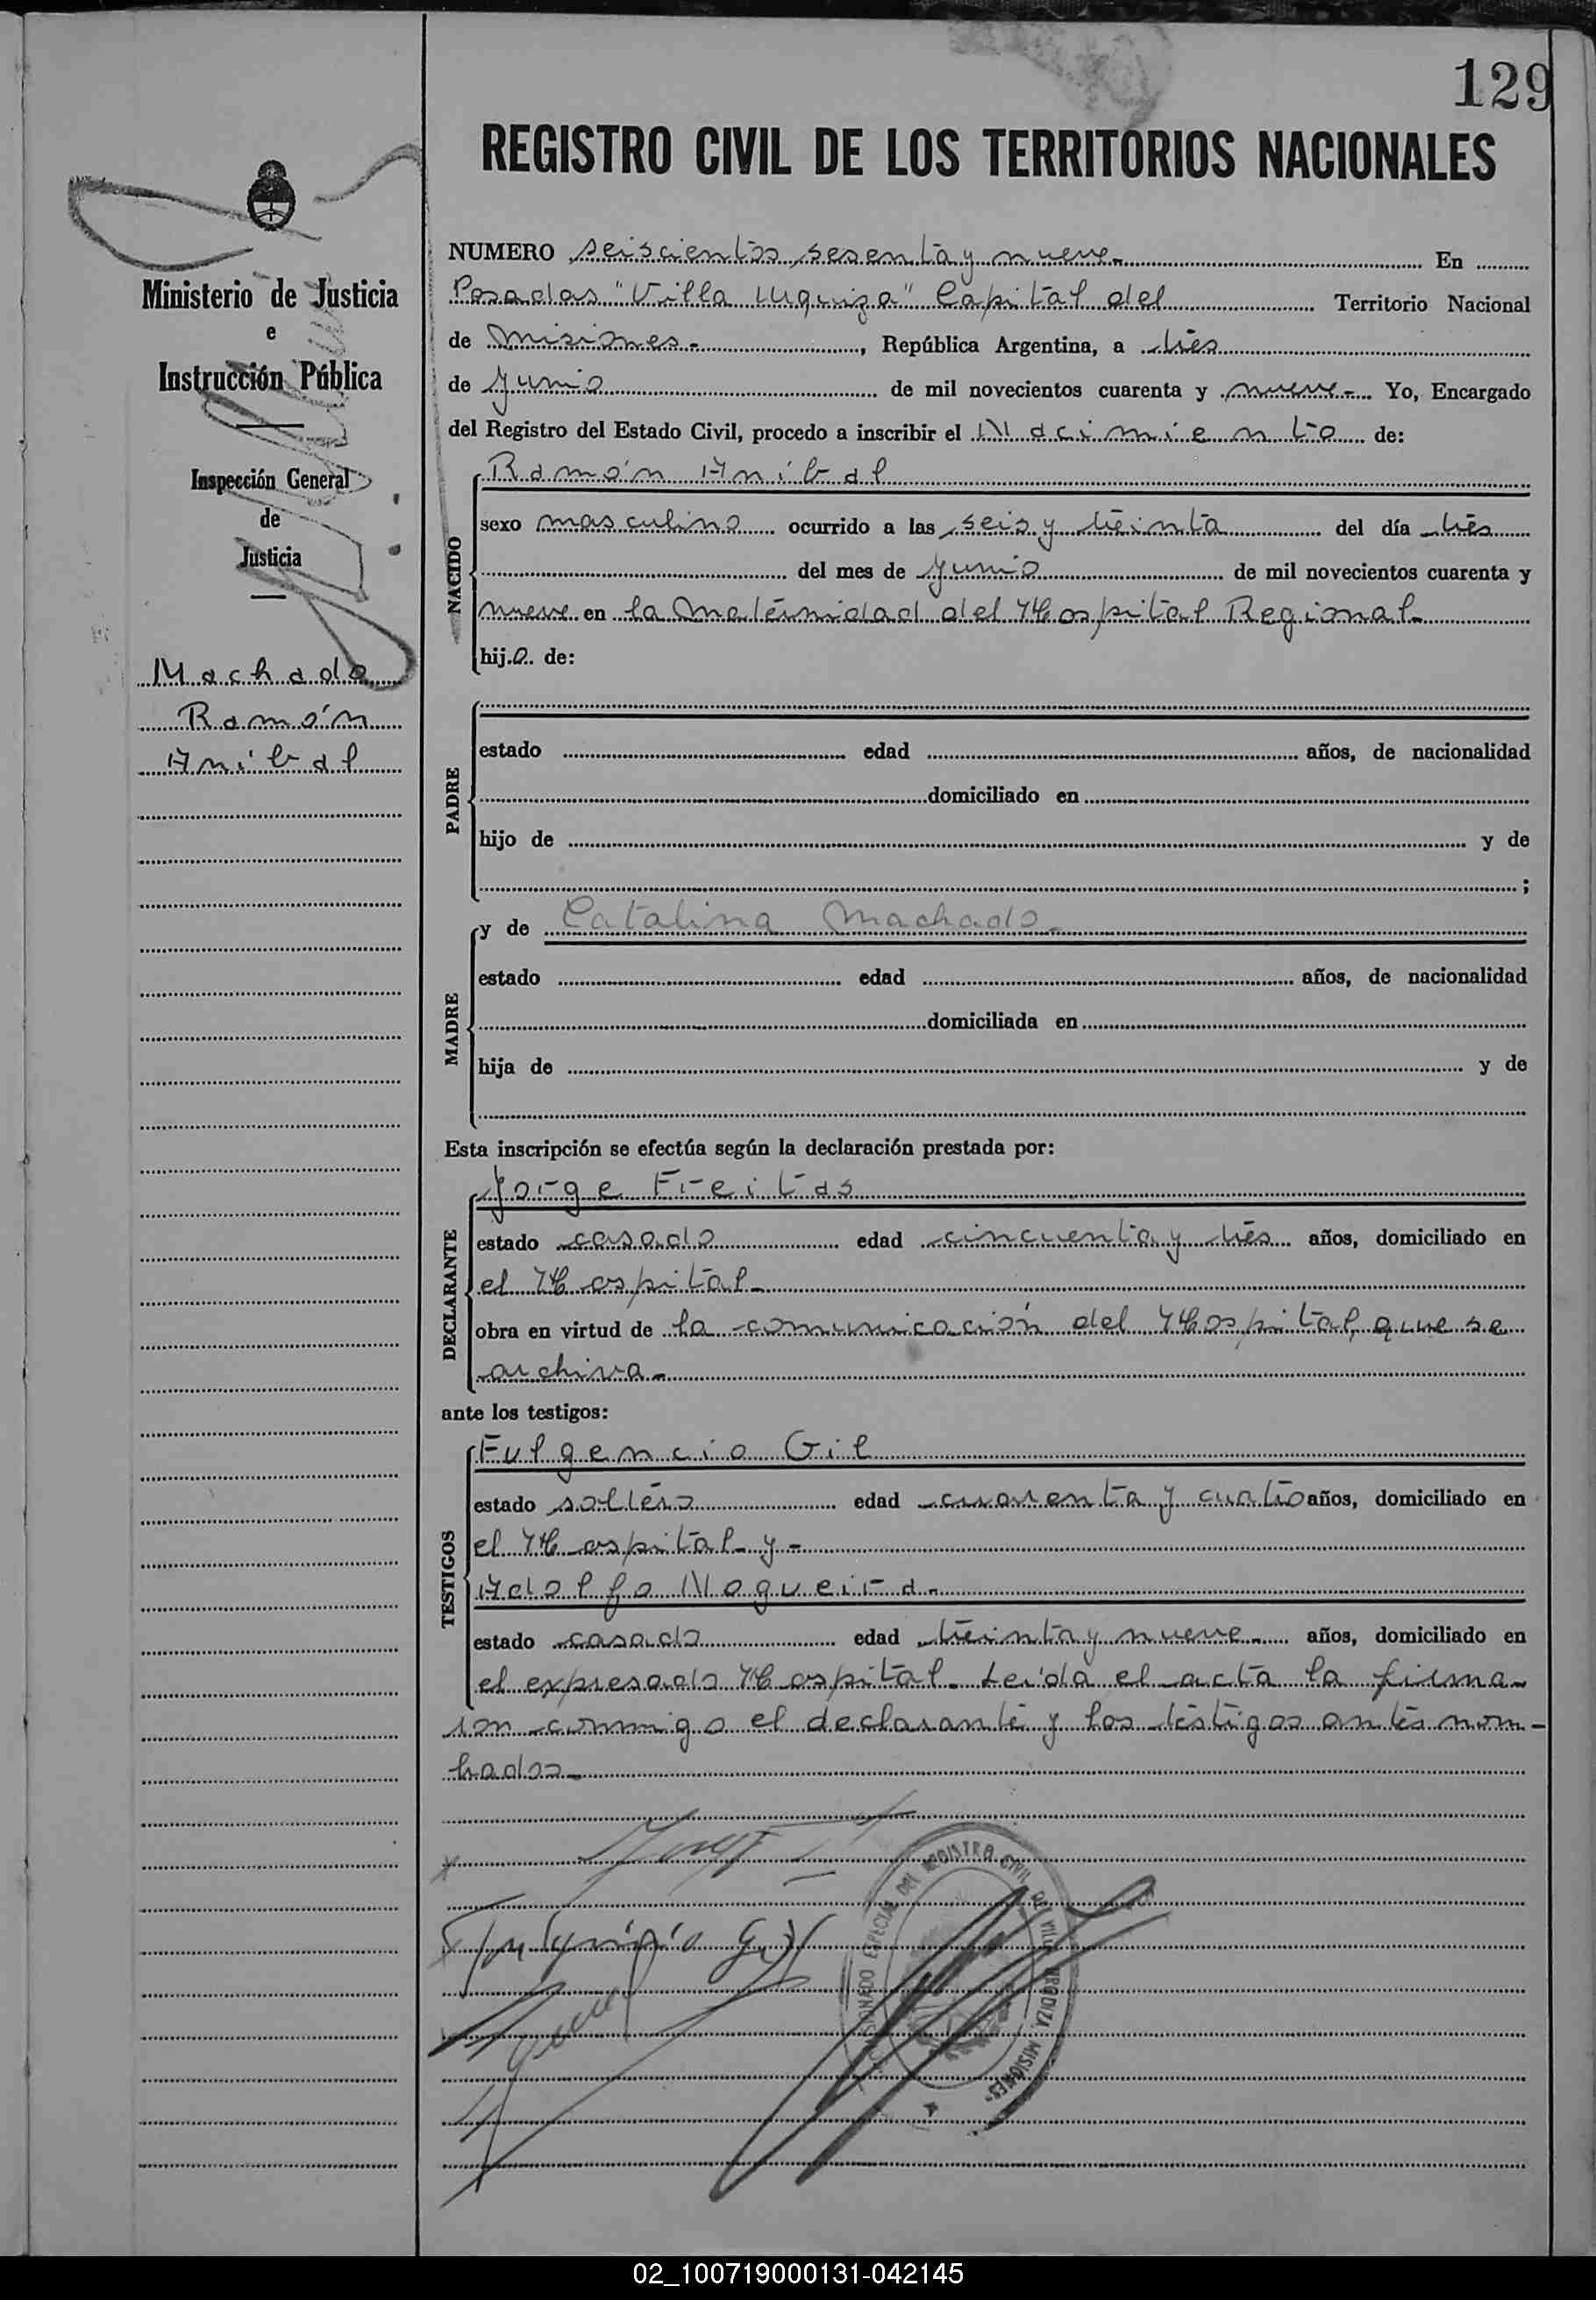 129
REGISTRO CIVIL DE LOS TERRITORIOS NACIONALES
Ministerio de Justicia
e
Instrucción Pública
Inspección General
de
Justicia
Machado
Ramón
Aníbal
NUMERO seiscientos sesenta y nueve.- En
Posadas "Villa Urquiza" Capital del Territorio Nacional
de Misiones.- , República Argentina, a tres
de Junio de mil novecientos cuarenta y nueve.- Yo, Encargado
del Registro del Estado Civil, procedo a inscribir el Nacimiento de:
NACIDO
Ramón Aníbal
sexo masculino ocurrido a las seis y treinta del día tres
del mes de Junio de mil novecientos cuarenta y
nueve en la Maternidad del Hospital Regional.-
hijo de:
PADRE
estado edad años, de nacionalidad
domiciliado en
hijo de y de
;
MADRE
y de Catalina Machado.-
estado edad años, de nacionalidad
domiciliada en
hija de y de
Esta inscripción se efectúa según la declaración prestada por:
DECLARANTE
Jorge Freitas
estado casado edad cincuenta y tres años, domiciliado en
el Hospital.-
obra en virtud de la comunicación del Hospital, que se
archiva.-
ante los testigos:
TESTIGOS
Fulgencio Gil
estado soltero edad cuarenta y cuatro años, domiciliado en
el Hospital y-
Adolfo Nogueira.-
estado casado edad treinta y nueve.- años, domiciliado en
el expresado Hospital. Leída el acta la firma-
ron conmigo el declarante y los testigos antes nom-
brados.-
Fulgencio Gil
ESPECIAL DEL REGISTRO CIVIL DE VILLA URQUIZA, MISIONES-
02_100719000131-042145